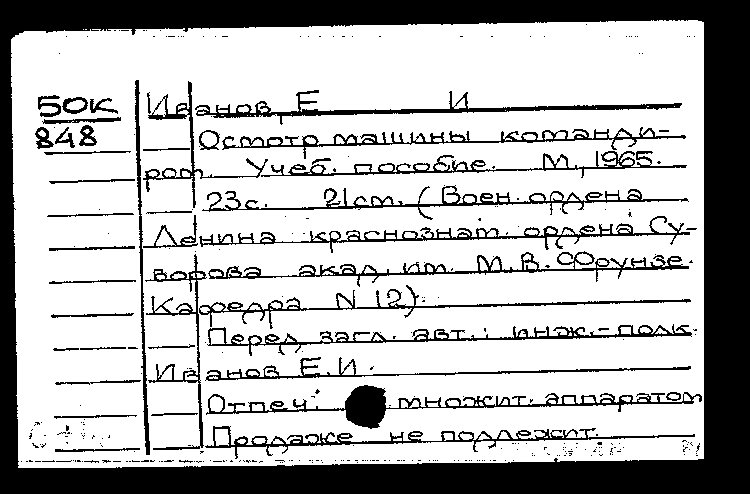 БОК Иванов, Е И
848 Осмотр машины команди-
ром. Учеб. пособие. М., 1965.
23с. 21см. (Воен. ордена
Ленина краснознам. ордена Су-
ворова акад. им. М.В. Фрунзе.
Кафедра N 12).
Перед загл. авт.: инж.-полк.
Иванов Е.И.
Отпеч. множит. аппаратом
Продаже не подлежит.